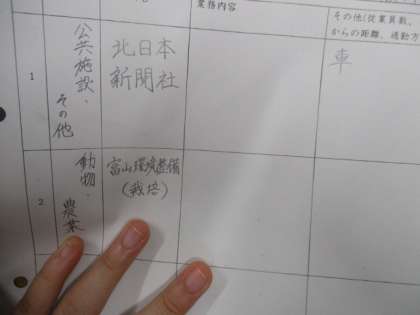 業務内容
その他(従業員数、
からの距離、通勤方
1
公共施設・
その他
北日本
新聞社
車
2
動物・
農業
富山環境整備
(栽培)